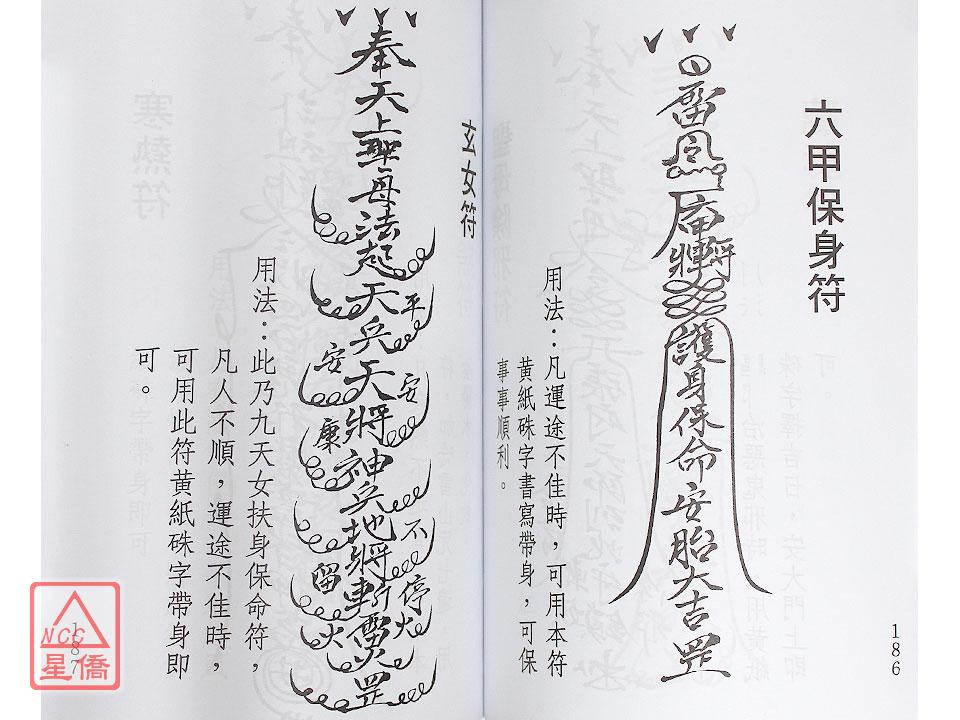 六甲保身符
雷令
護身保命安胎大吉罡
用法：凡運途不佳時，可用本符
黃紙硃字書寫帶身，可保
事事順利。
186
玄女符
奉天上聖母法起天兵天將神兵地將斬罡
平安
安康
不停火
留火
用法：此乃九天女扶身保命符，
凡人不順，運途不佳時，
可用此符黃紙硃字帶身即
可。
187
NCC
星僑